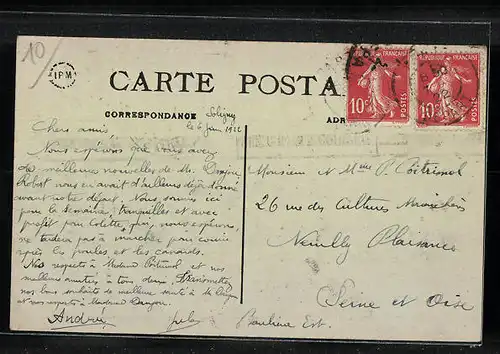 10
IPM
CARTE POSTA
RÉPUBLIQUE FRANÇAISE
10c POSTES
10c POSTES
CORRESPONDANCE
ADR
Soligny
le 6 juin 1922
Chers amis,
Nous espérons que vous avez
de meilleures nouvelles de M.
Robert nous en avait d'ailleurs déjà donné
avant notre départ. Nous sommes ici
pour la semaine, tranquilles et avec
profit pour Colette, qui, nous espérons,
ne tardera pas à marcher pour courir
après les poules et les canards.
Nos respects à Madame et nos
meilleures amitiés à tous deux.
nos bons souhaits de meilleure santé à M.
et nos respects à Madame
André
Monsieur et Mme P.
26 rue des Cultures Maraichères
Neuilly Plaisance
Seine et Oise
Banlieue Est.